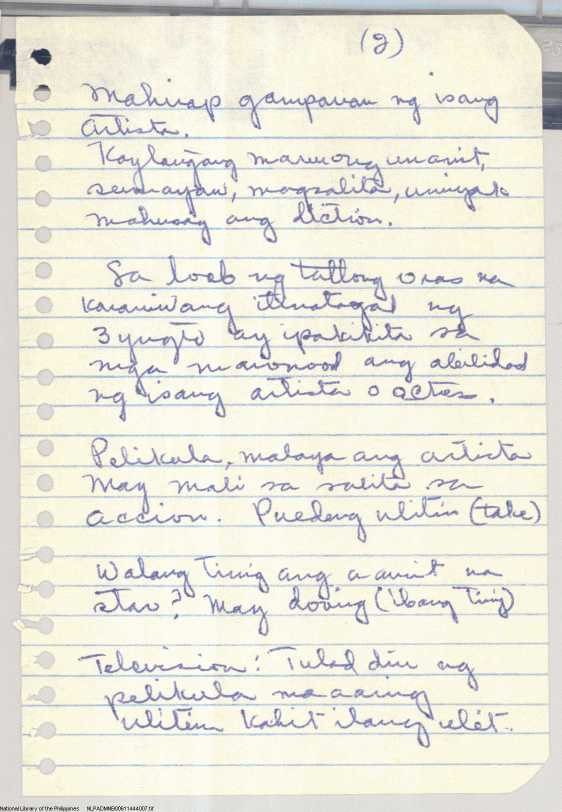 (2)
Mahirap gampanan ng isang
artista.
Kaylangang marunong umawit,
sumayaw, magsalita, umiyak
mahusay ang diction.
Sa loob ng tatlong oras na
karaniwang itinatagal ng
3 yugto ay ipakikita sa
mga manonood ang abilidad
ng isang artista o actres.
Pelikula, malaya ang artista
May mali sa salita sa
accion. Puedeng ulitin (take)
Walang tinig ang aawit na
star? May doving (ibang tinig)
Television: Tulad din ng
pelikula maaaring
ulitin kahit ilang ulit.
National Library of the Philippines NLPADMNB00611444007.tif